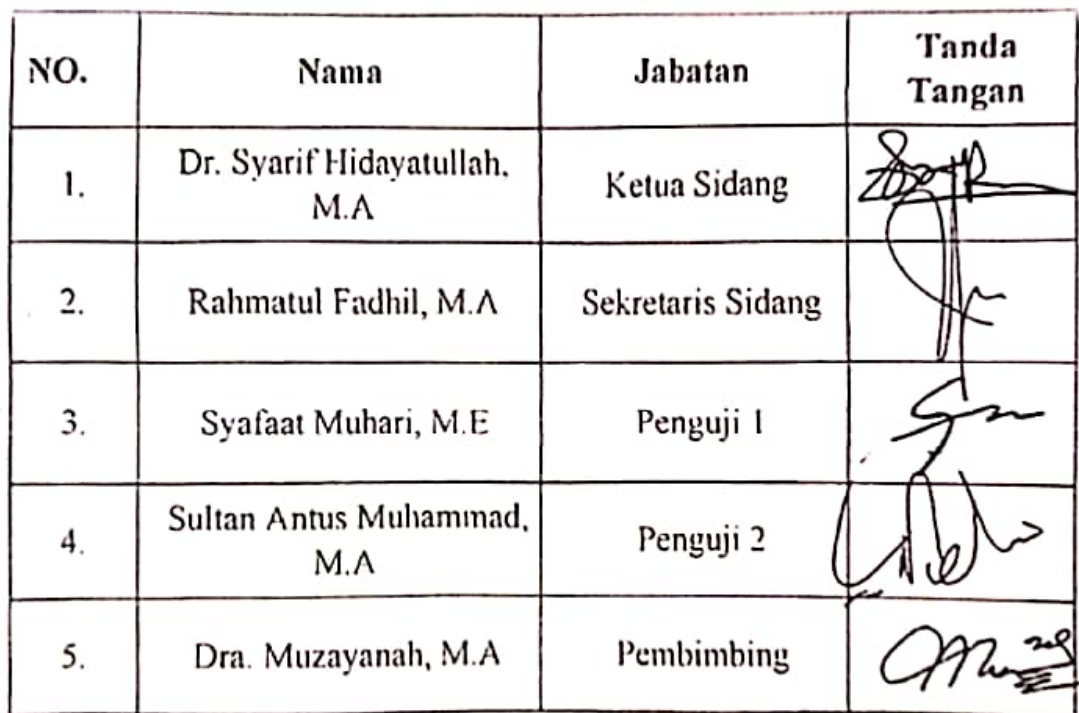 NO. Nama Jabatan Tanda
Tangan
1. Dr. Syarif Hidayatullah, Ketua Sidang
M.A
2. Rahmatul Fadhil, M.A Sekretaris Sidang
3. Syafaat Muhari, M.E Penguji 1
4. Sultan Antus Muhammad, Penguji 2
M.A
5. Dra. Muzayanah, M.A Pembimbing